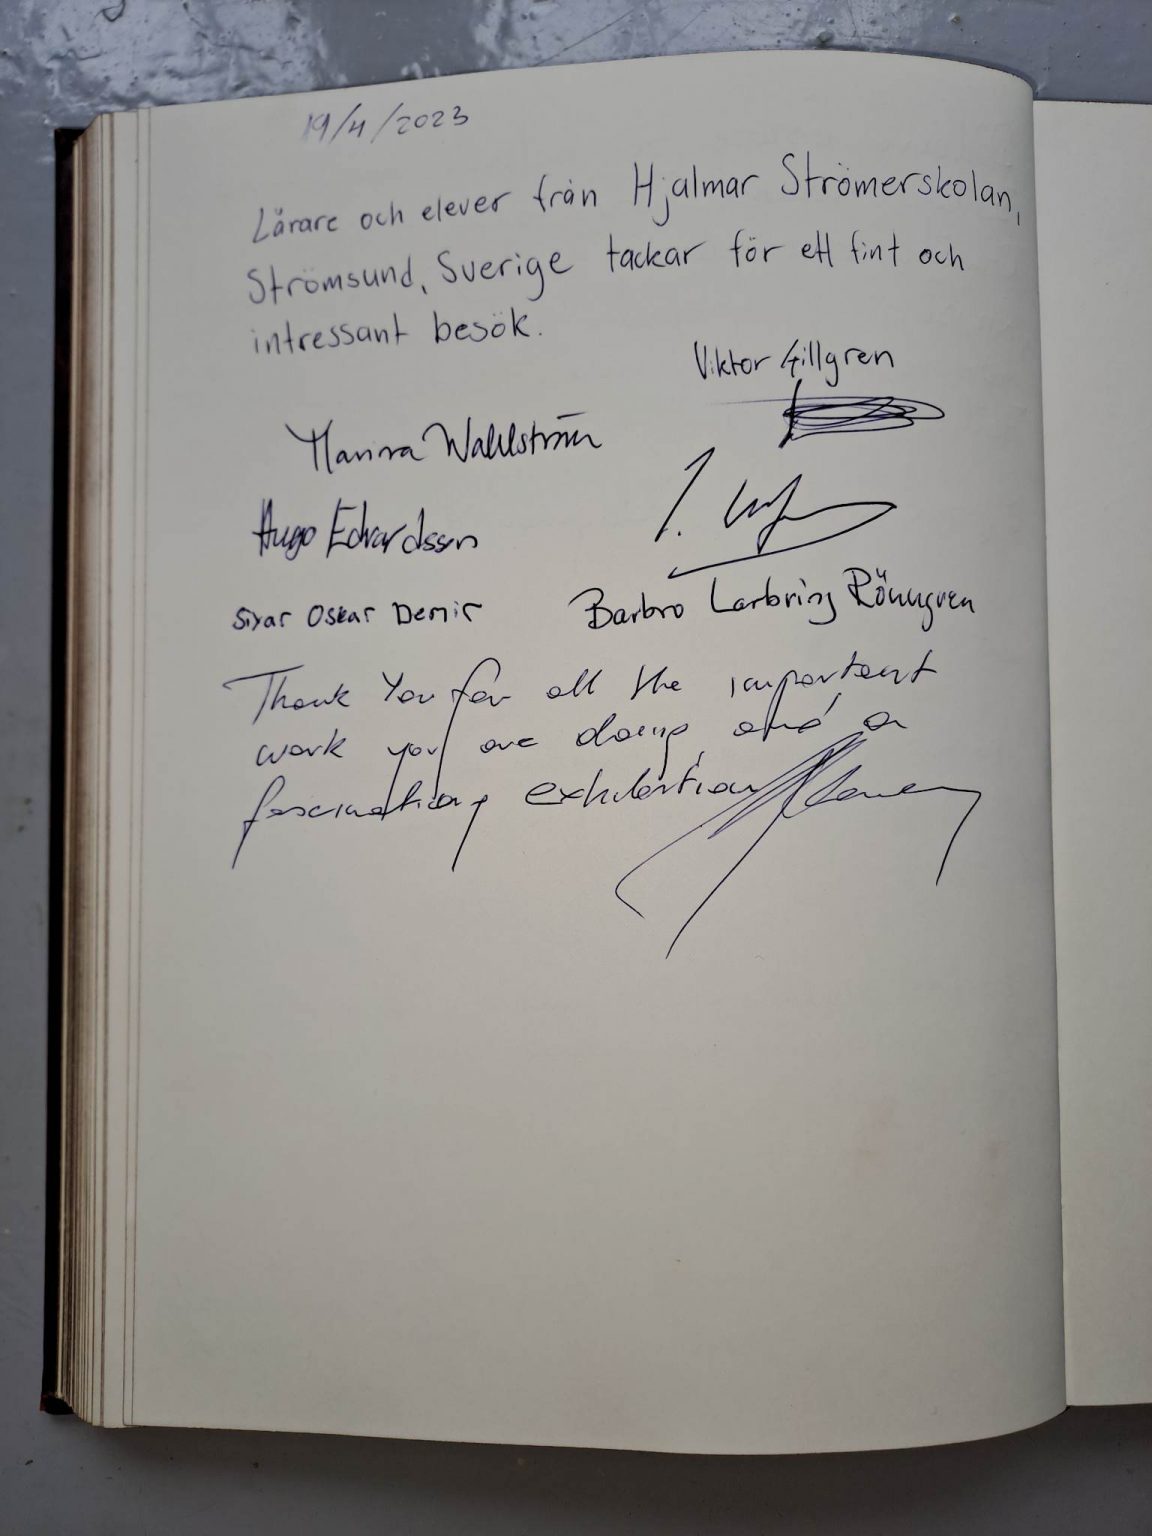 19/4/2023
Lärare och elever från Hjalmar Strömerskolan,
Strömsund, Sverige tackar för ett fint och
intressant besök.
Viktor Gillgren
Marina Wahlström
Hugo Edvardsson
Siyar Oskar Demir
Barbro Larbring Rönngren
Thank You for all the important
work you are doing and a
fascinating exhibition